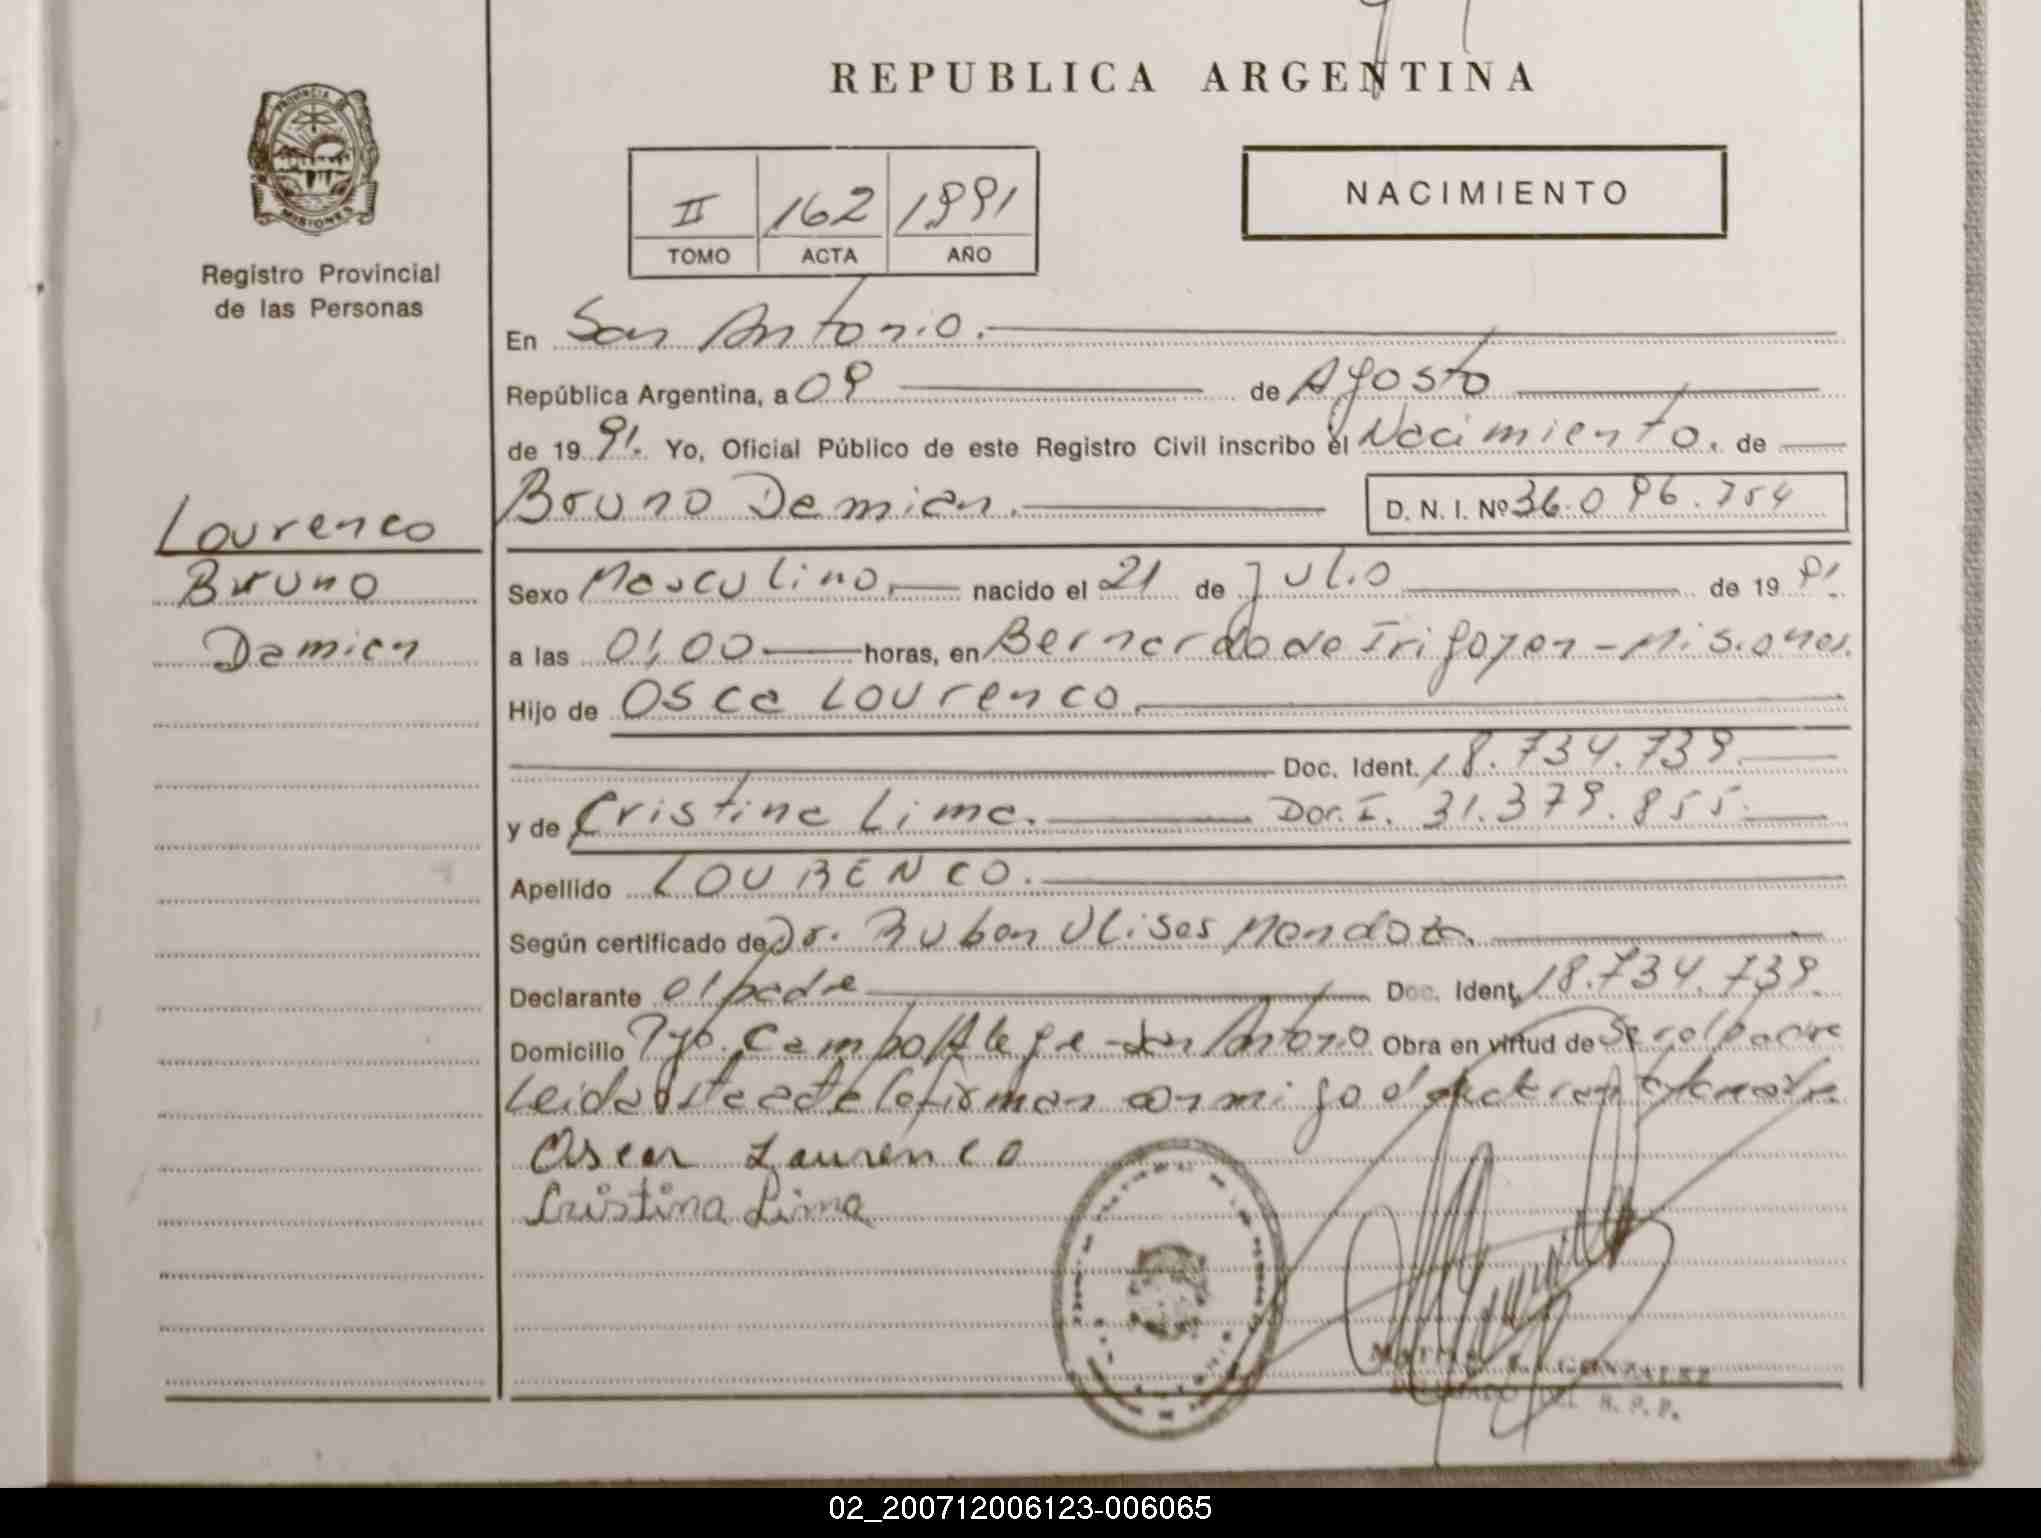 REPUBLICA ARGENTINA
PROVINCIA DE
MISIONES
Registro Provincial
de las Personas
II 162 1991
TOMO ACTA AÑO
NACIMIENTO
En San Antonio.
República Argentina, a 09 de Agosto
de 1991. Yo, Oficial Público de este Registro Civil inscribo el Nacimiento. de
Lourenco
Bruno
Damian
Bruno Damian. D. N. I. Nº 36.096.754
Sexo Masculino, nacido el 21 de Julio de 1991.
a las 01,00 horas, en Bernardo de Irigoyen - Misiones.
Hijo de Osca Lourenco.
Doc. Ident. 18.734.739.
y de Cristina Lima. Doc. I. 31.379.855.
Apellido LOURENCO.
Según certificado de Dr. Ruben Ulises Mendoza.
Declarante el padre Doc. Ident. 18.734.739.
Domicilio Campo Alegre - San Antonio Obra en virtud de
Leida acta la firman conmigo
Oscar Laurenco
Cristina Lima
GONZALEZ
DEL R. P. P.
02_200712006123-006065